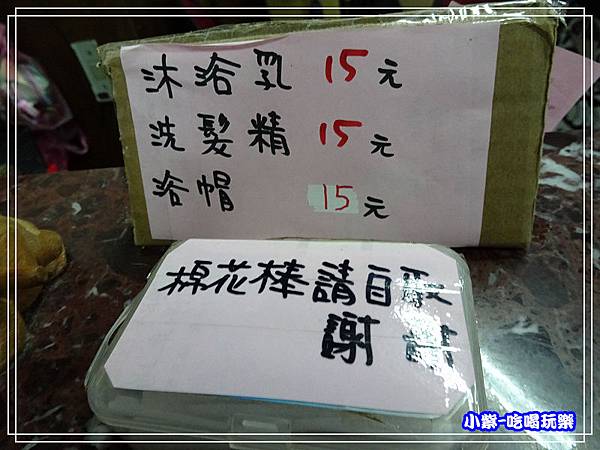 沐浴乳 15元
洗髮精 15元
浴帽 15元
棉花棒請自取
謝謝
小紫-吃喝玩樂